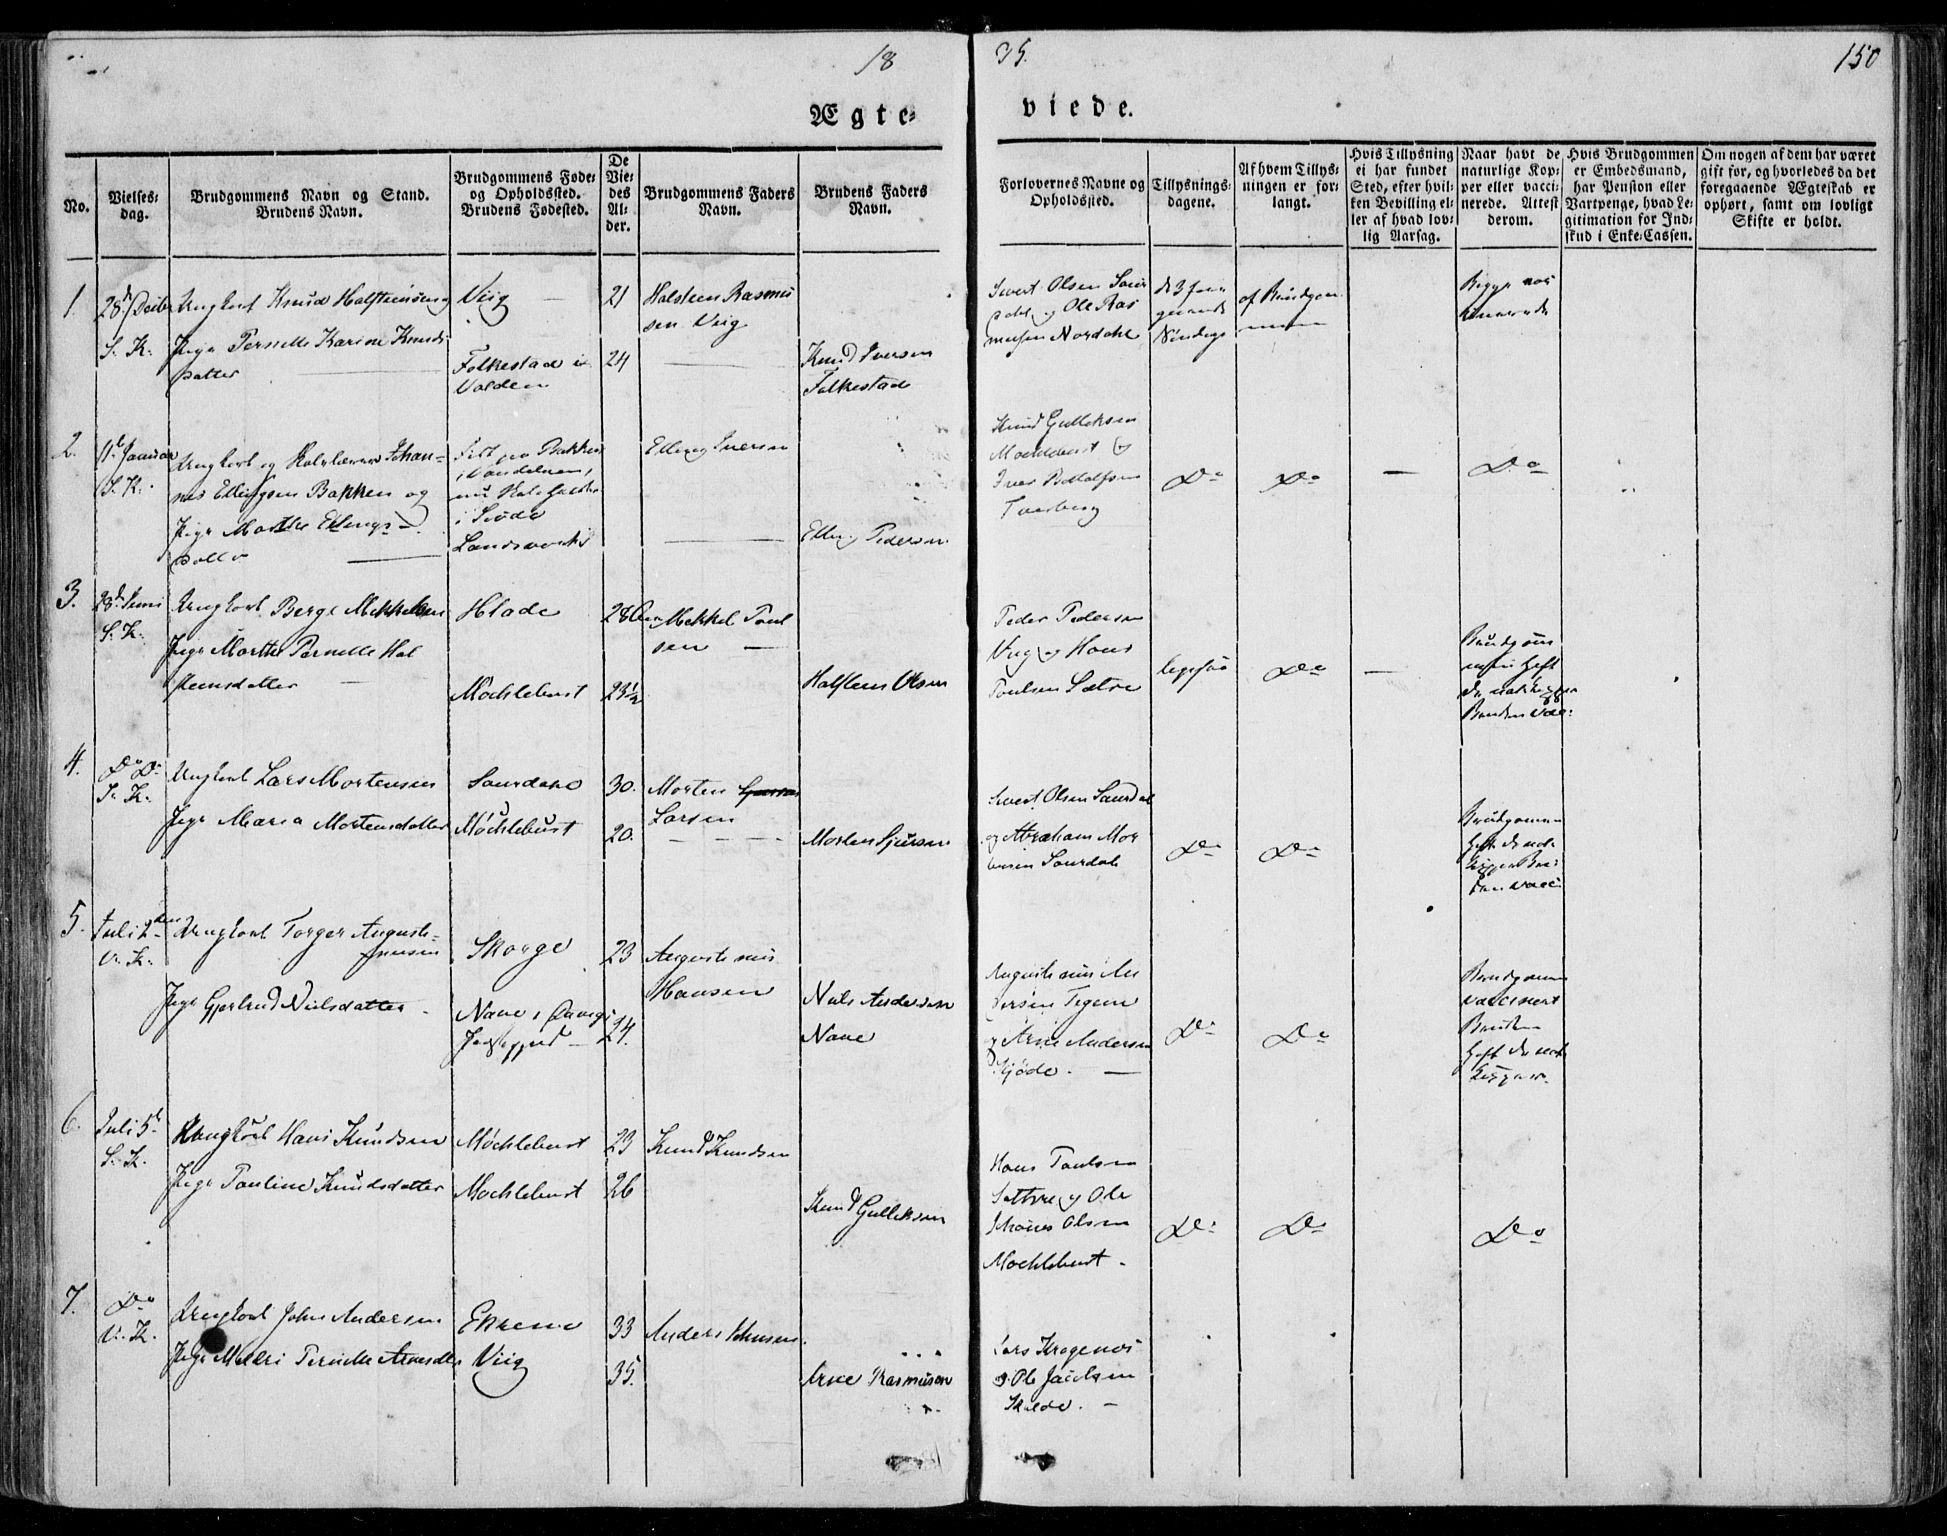 18
35.
150
Ægte-
viede.
No.
Vielses-
dag.
Brudgommens Navn og Stand.
Brudens Navn.
Brudgommens Føde-
og Opholdssted.
Brudens Fødested.
De
Vie-
des
Al-
der.
Brudgommens Faders
Navn.
Brudens Faders
Navn.
Forlovernes Navne og
Opholdssted.
Tillysnings-
dagene.
Af hvem Tillys-
ningen er for-
langt.
Hvis Tillysning
ei har fundet
Sted, efter hvil-
ken Bevilling el-
ler af hvad lov-
lig Aarsag.
Naar havt de
naturlige Kop-
per eller vacci-
nerede. Attest
derom.
Hvis Brudgommen
er Embedsmand,
har Pension eller
Vartpenge, hvad Le-
gitimation for Ind-
skud i Enke-Cassen.
Om nogen af dem har været
gift før, og hvorledes da det
foregaaende Ægteskab er
ophørt, samt om lovligt
Skifte er holdt.
1.
28d Decbr
S. K.
Ungkarl Knud Halsteinsen og
Pige Pernelle Karine Knuds
datter
Viig
Folkestad i
Volden
21
24
Halsteen Rasmus
sen Viig
Knud Iversen
Folkestad
Sivert Olsen Saur
dahl og Ole Ras
musen Nordahl
de 3 fore
gaaende
Søndage
af Brudgom
men
Begge vac
cinerede
2.
11t Januar
S. K.
Ungkarl og Skolelærer Johan-
nes Ellingsen Bakken og
Pige Marthe Ellings-
datter
Født paa Bakken
i Vandelven,
i Søvde
Landsverk
Elling Iversen
Elling Pedersen
Knud Gulleksen
Mochlebust og
Iver
Tverberg
Do
Do
Do
3.
28d Juni
S. K.
Ungkarl Berge Mekkelsen
Pige Marthe Pernelle Hal
steensdatter
Hlade
Mochlebust
28
23 1/2
Mekkel Poul
sen
Halsteen Olsen
Peder Pedersen
Viig og Hans
Poulsen Sætre
ligesaa
Do
Brudgom
men haft
de nat. kopper
Bruden vac:
4.
Do Do
S. K.
Ungkarl Lars Mortensen
Pige Maria Mortensdatter
Saurdahl
Mochlebust
30.
20.
Morten
Larsen
Morten Sjursen
Sivert Olsen Saurdal
og Abraham Mor
tensen Saurdal
Do
Do
Brudgommen
haft de nat.
kopper Bru
den vacc
5.
Juli 2den
V. K.
Ungkarl Torger Augusti-
nusen
Pige Gjertrud Nielsdatter
Skorge
Nave i
Præstegjeld
23
24.
Augustinus
Hansen
Niels Andersen
Nave
Augustinus An
dersen Tegem
og Arne Andersen
Kjøde.
Do
Do
Brudgommen
vaccinert
Bruden
haft de nat.
kopper.
6.
Juli 5t
S. K.
Ungkarl Hans Knudsen
Pige Pauline Knudsdatter
Mochlebust
Mochlebust
23
26
Knud Knudsen
Knud Gulleksen
Hans Poulsen
Sættre og Ole
Johannes Olsen
Mochlebust.
Do
Do
Do
7.
Do
V. K.
Ungkarl John Andersen
Pige Pernelle Arnesdtr
Ekrene
Viig
33
35.
Anders Johnsen
Arne Rasmusen
Lars Kragenæs
og Ole Jacobsen